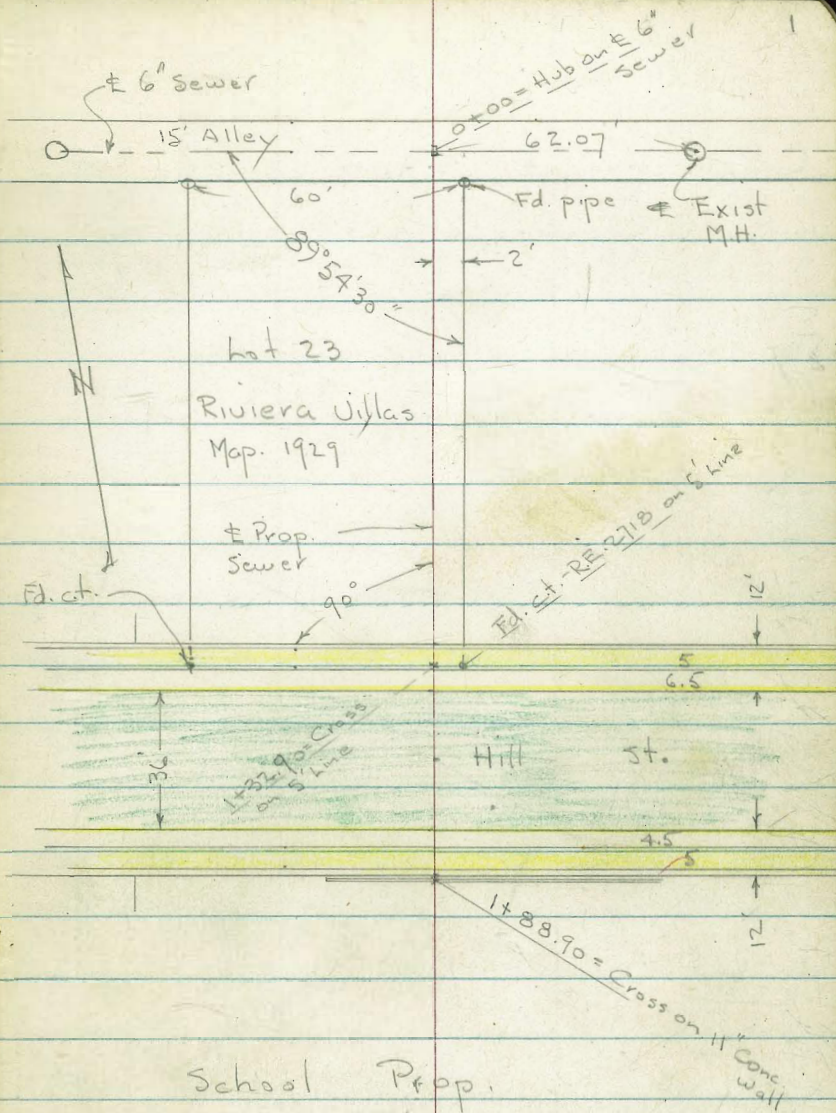 1
℄ 6" Sewer
0+00 = Hub on ℄ 6"
Sewer
15' Alley
62.07'
60'
Fd. pipe
℄ Exist
M.H.
89° 54' 30"
2'
Lot 23
N
Riviera Villas
Map. 1929
℄ Prop.
Sewer
Fd. c.t. - R.E. 2718 on 5' Line
Fd. c.t.
90°
12'
5
6.5
36'
1+32.90 = Cross
on 5' Line
Hill St.
4.5
5
1+88.90 = Cross on 11" Conc
Wall
12'
School Prop.